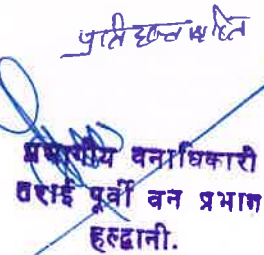 प्रति हस्ताक्षरित
प्रभागीय वनाधिकारी
तराई पूर्वी वन प्रभाग
हल्द्वानी.